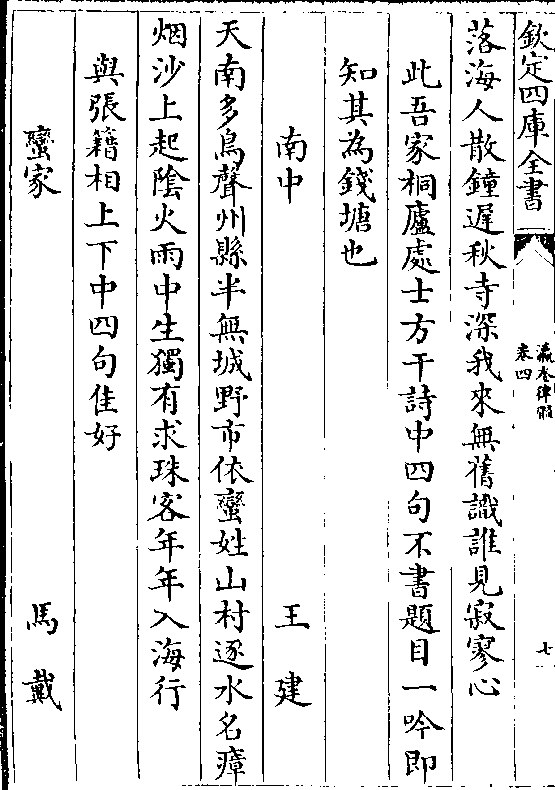 欽定四庫全書
瀛奎律髓
卷四
七
落海人散鐘遲秋寺深我來無舊識誰見寂寥心
此吾家桐廬處士方干詩中四句不書題目一吟即
知其為錢塘也
南中　王建
天南多鳥聲州縣半無城野市依蠻姓山村逐水名瘴
烟沙上起陰火雨中生獨有求珠客年年入海行
與張籍相上下中四句佳好
蠻家　馬戴